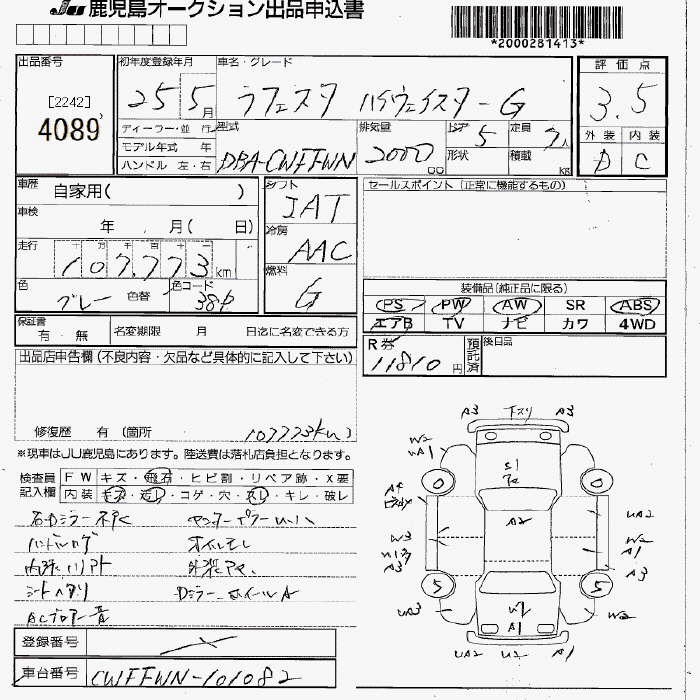 JU 鹿児島オークション出品申込書
*2000281413*
出品番号
[2242]
4089
初年度登録年月
25 5月
車名・グレード
ラフェスタ ハイウェイスターG
評価点
3.5
外装 内装
D C
ディーラー・並行
モデル年式 年
ハンドル 左・右
型式
DBA-CWFFWN
排気量
2000
cc
ドア 5
形状
定員 7人
積載 kg
車歴
自家用( )
車検
年 月( 日)
走行
十 万 千 百 十 一
107,773 km
色
グレー
色替
色コード
38P
シフト
IAT
冷房
AAC
燃料
G
セールスポイント (正常に機能するもの)
装備品(純正品に限る)
PS PW AW SR ABS
エアB TV ナビ カワ 4WD
保証書
有・無
名変期限 月 日迄に名変できる方
R券
11810円
預託済
後日品
出品店申告欄 (不良内容・欠品など具体的に記入して下さい)
修復歴 有 (箇所
107773km)
※現車はJU鹿児島にあります。陸送費は落札店負担となります。
検査員記入欄
FW キズ・飛石・ヒビ割・リペア跡・X要
内装 キズ・汚レ・コゲ・穴・スレ・キレ・破レ
ハンドルスレ
オイルモレ
シートヘタリ
Dミラー、ホイールA
ACブロアー音
登録番号
車台番号
CWFFWN-101082
A3 下スリ A3
W2
UA1
S1
A2
A4
W3
A3
UA2
W2
A1
A3
0 0
5 5
UA3
W2
W1
A1
UA2 U2 A1